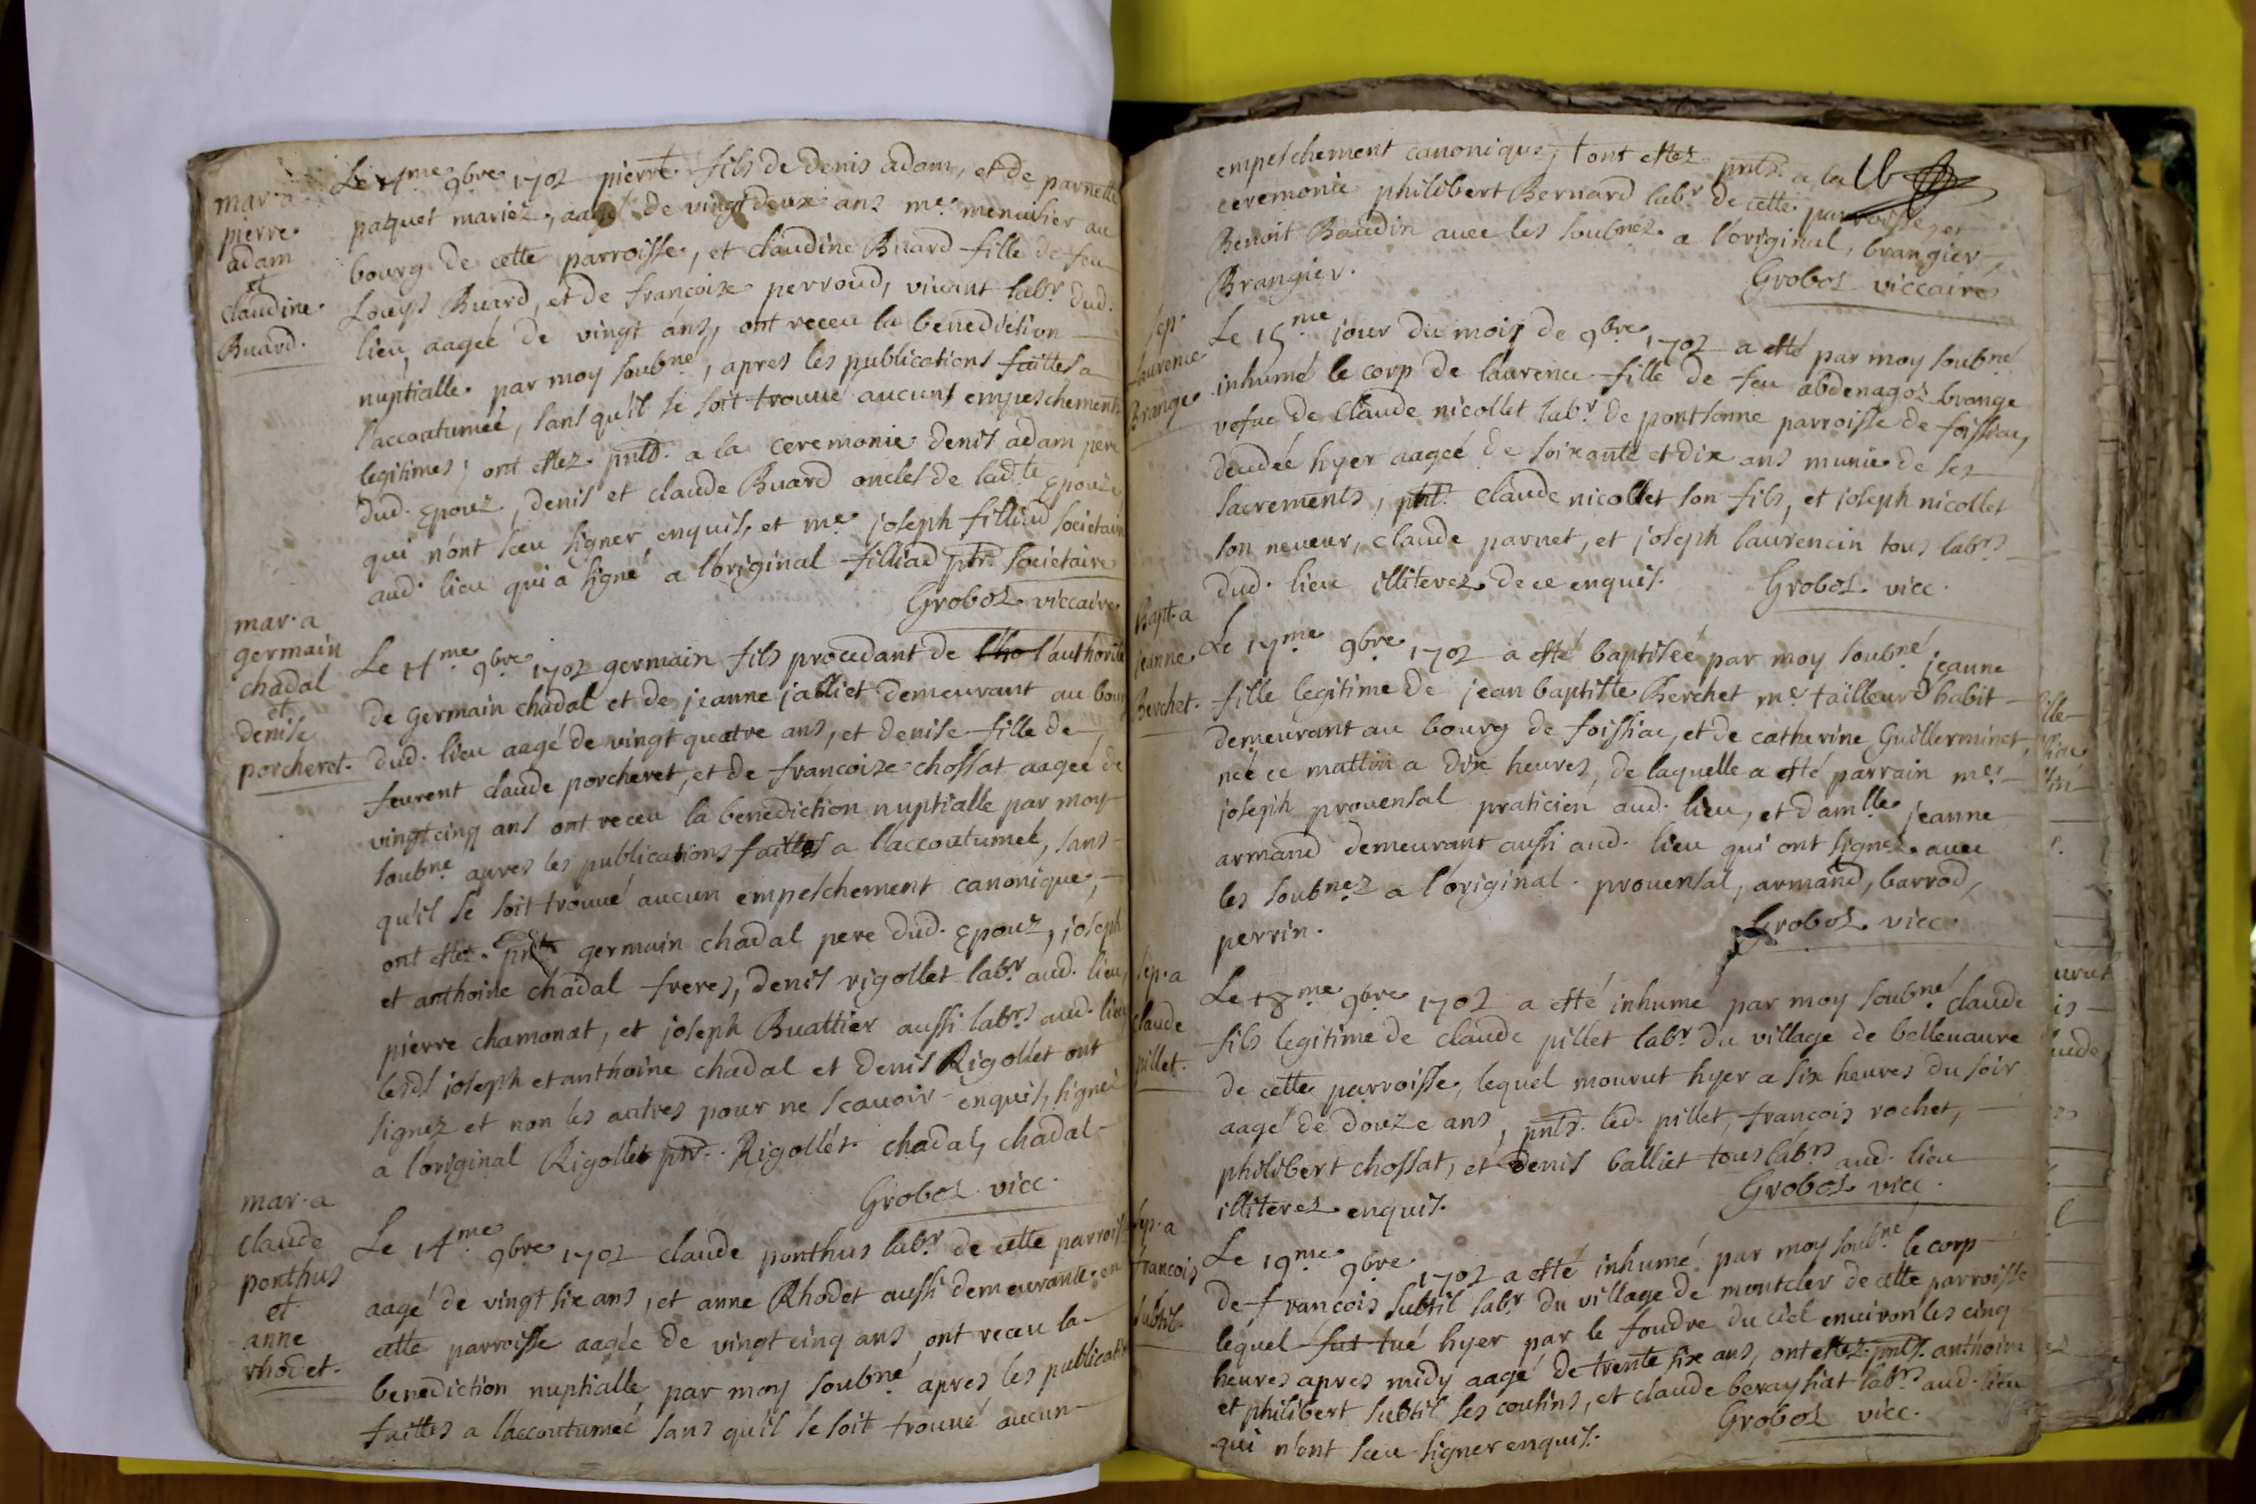 mar. a
pierre
adam
et
claudine
Buard.
Le 7me 9bre 1702 pierre fils de denis adam, et de parnette
paquet mariez, aagé de vingt deux ans me menusier au
bourg de cette parroisse, et claudine Buard fille de feu
Louys Buard, et de francoise perroud, vivant labr dud.
lieu, aageé de vingt ans, ont receu la benediction
nuptialle par moy soubné, apres les publications faittes a
l'accoutumeé, sans qu'il se soit trouué aucuns empeschements
legitimes; ont estez pnts. a la ceremonie denis adam pere
dud. Epouz, denis et claude Buard oncles de lad.te Epouze
qui n'ont sceu signer enquis, et me joseph filliad societaire
aud. lieu qui a signé a l'original filliad ptr. societaire
Groboz viccaire
mar. a
germain
chadal
et
denise
porcheret.
Le 14me 9bre 1702 germain fils procedant de l'ho l'authorité
de germain chadal et de jeanne jalliet demeurant au bourg
dud. lieu aagé de vingt quatre ans, et denise fille de
feurent claude porcheret, et de francoise chossat aageé de
vingt cinq ans ont receu la benediction nuptialle par moy
soubné apres les publications faittes a l'accoutumeé, sans
qu'il se soit trouué aucun empeschement canonique,
ont estez pnts germain chadal pere dud. Epouz, joseph
et anthoine chadal freres, denis rigollet labr aud. lieu,
pierre chamonat, et joseph Buattier aussi labrs aud. lieu
lesds joseph et anthoine chadal et denis Rigollet ont
signez et non les autres pour ne scauoir enquis, signeé
a l'original Rigollet ptr. Rigollet. chadal, chadal
Groboz vicc.
mar. a
claude
ponthus
et
anne
rhodet.
Le 14me 9bre 1702 claude ponthus labr de cette parroisse
aagé de vingt six ans, et anne Rhodet aussi demeurante en
cette parroisse aagée de vingt cinq ans, ont receu la
benediction nuptialle par moy soubné apres les publications
faittes a l'accoutumeé sans qu'il se soit trouué aucun
empeschement canonique, ont estez pnts. a la
ceremonie philibert Bernard labr de cette parroisse, et
Benoit Baudin auec les soubnez a l'original, brangier,
Brangier.
Groboz viccaire
sep.
laurence
Brange
Le 15me jour du mois de 9bre 1702 a esté par moy soubné
inhumé le corp de laurence fille de feu abdenagoz brange
vefue de claude nicollet labr de pontsonne parroisse de foissiac,
decedeé hyer aageé de soixante et dix ans munie de ses
sacrements, pnt. claude nicollet son fils, et joseph nicollet
son neueur, claude parnet, et joseph laurencin tous labrs
dud. lieu illiterez de ce enquis.
Groboz vicc.
Bapt. a
jeanne
Berchet.
Le 17me 9bre 1702 a esté baptiseé par moy soubné jeanne
fille legitime de jean baptiste Berchet me tailleur d'habit
demeurant au bourg de foissiac, et de catherine Guillerminet,
neé ce mattin a dix heures, de laquelle a esté parrain me
joseph prouensal praticien aud. lieu, et damlle jeanne
armand demeurant aussi aud. lieu qui ont signez auec
les soubnez a l'original. prouensal, armand, barrod,
perrin.
Groboz vicc.
sep. a
claude
pillet.
Le 18me 9bre 1702 a esté inhumé par moy soubné claude
fils legitime de claude pillet labr du village de belleuaure
de cette parroisse, lequel mourut hyer a six heures du soir
aagé de douze ans, pnts. led. pillet, francois rochet,
philibert chossat, et denis balliet tous labrs aud. lieu
illiterez enquis.
Groboz vicc.
sep. a
francois
subtil
Le 19me 9bre 1702 a esté inhumé par moy soubné le corp
de francois subtil labr du village de montcler de cette parroisse
lequel fut tué hyer par le foudre du ciel enuiron les cinq
heures apres midy aagé de trente six ans, ont estez pnts. anthoine
et philibert subtil ses cousins, et claude beraysiat labrs aud. lieu
qui n'ont sceu signer enquis.
Groboz vicc.